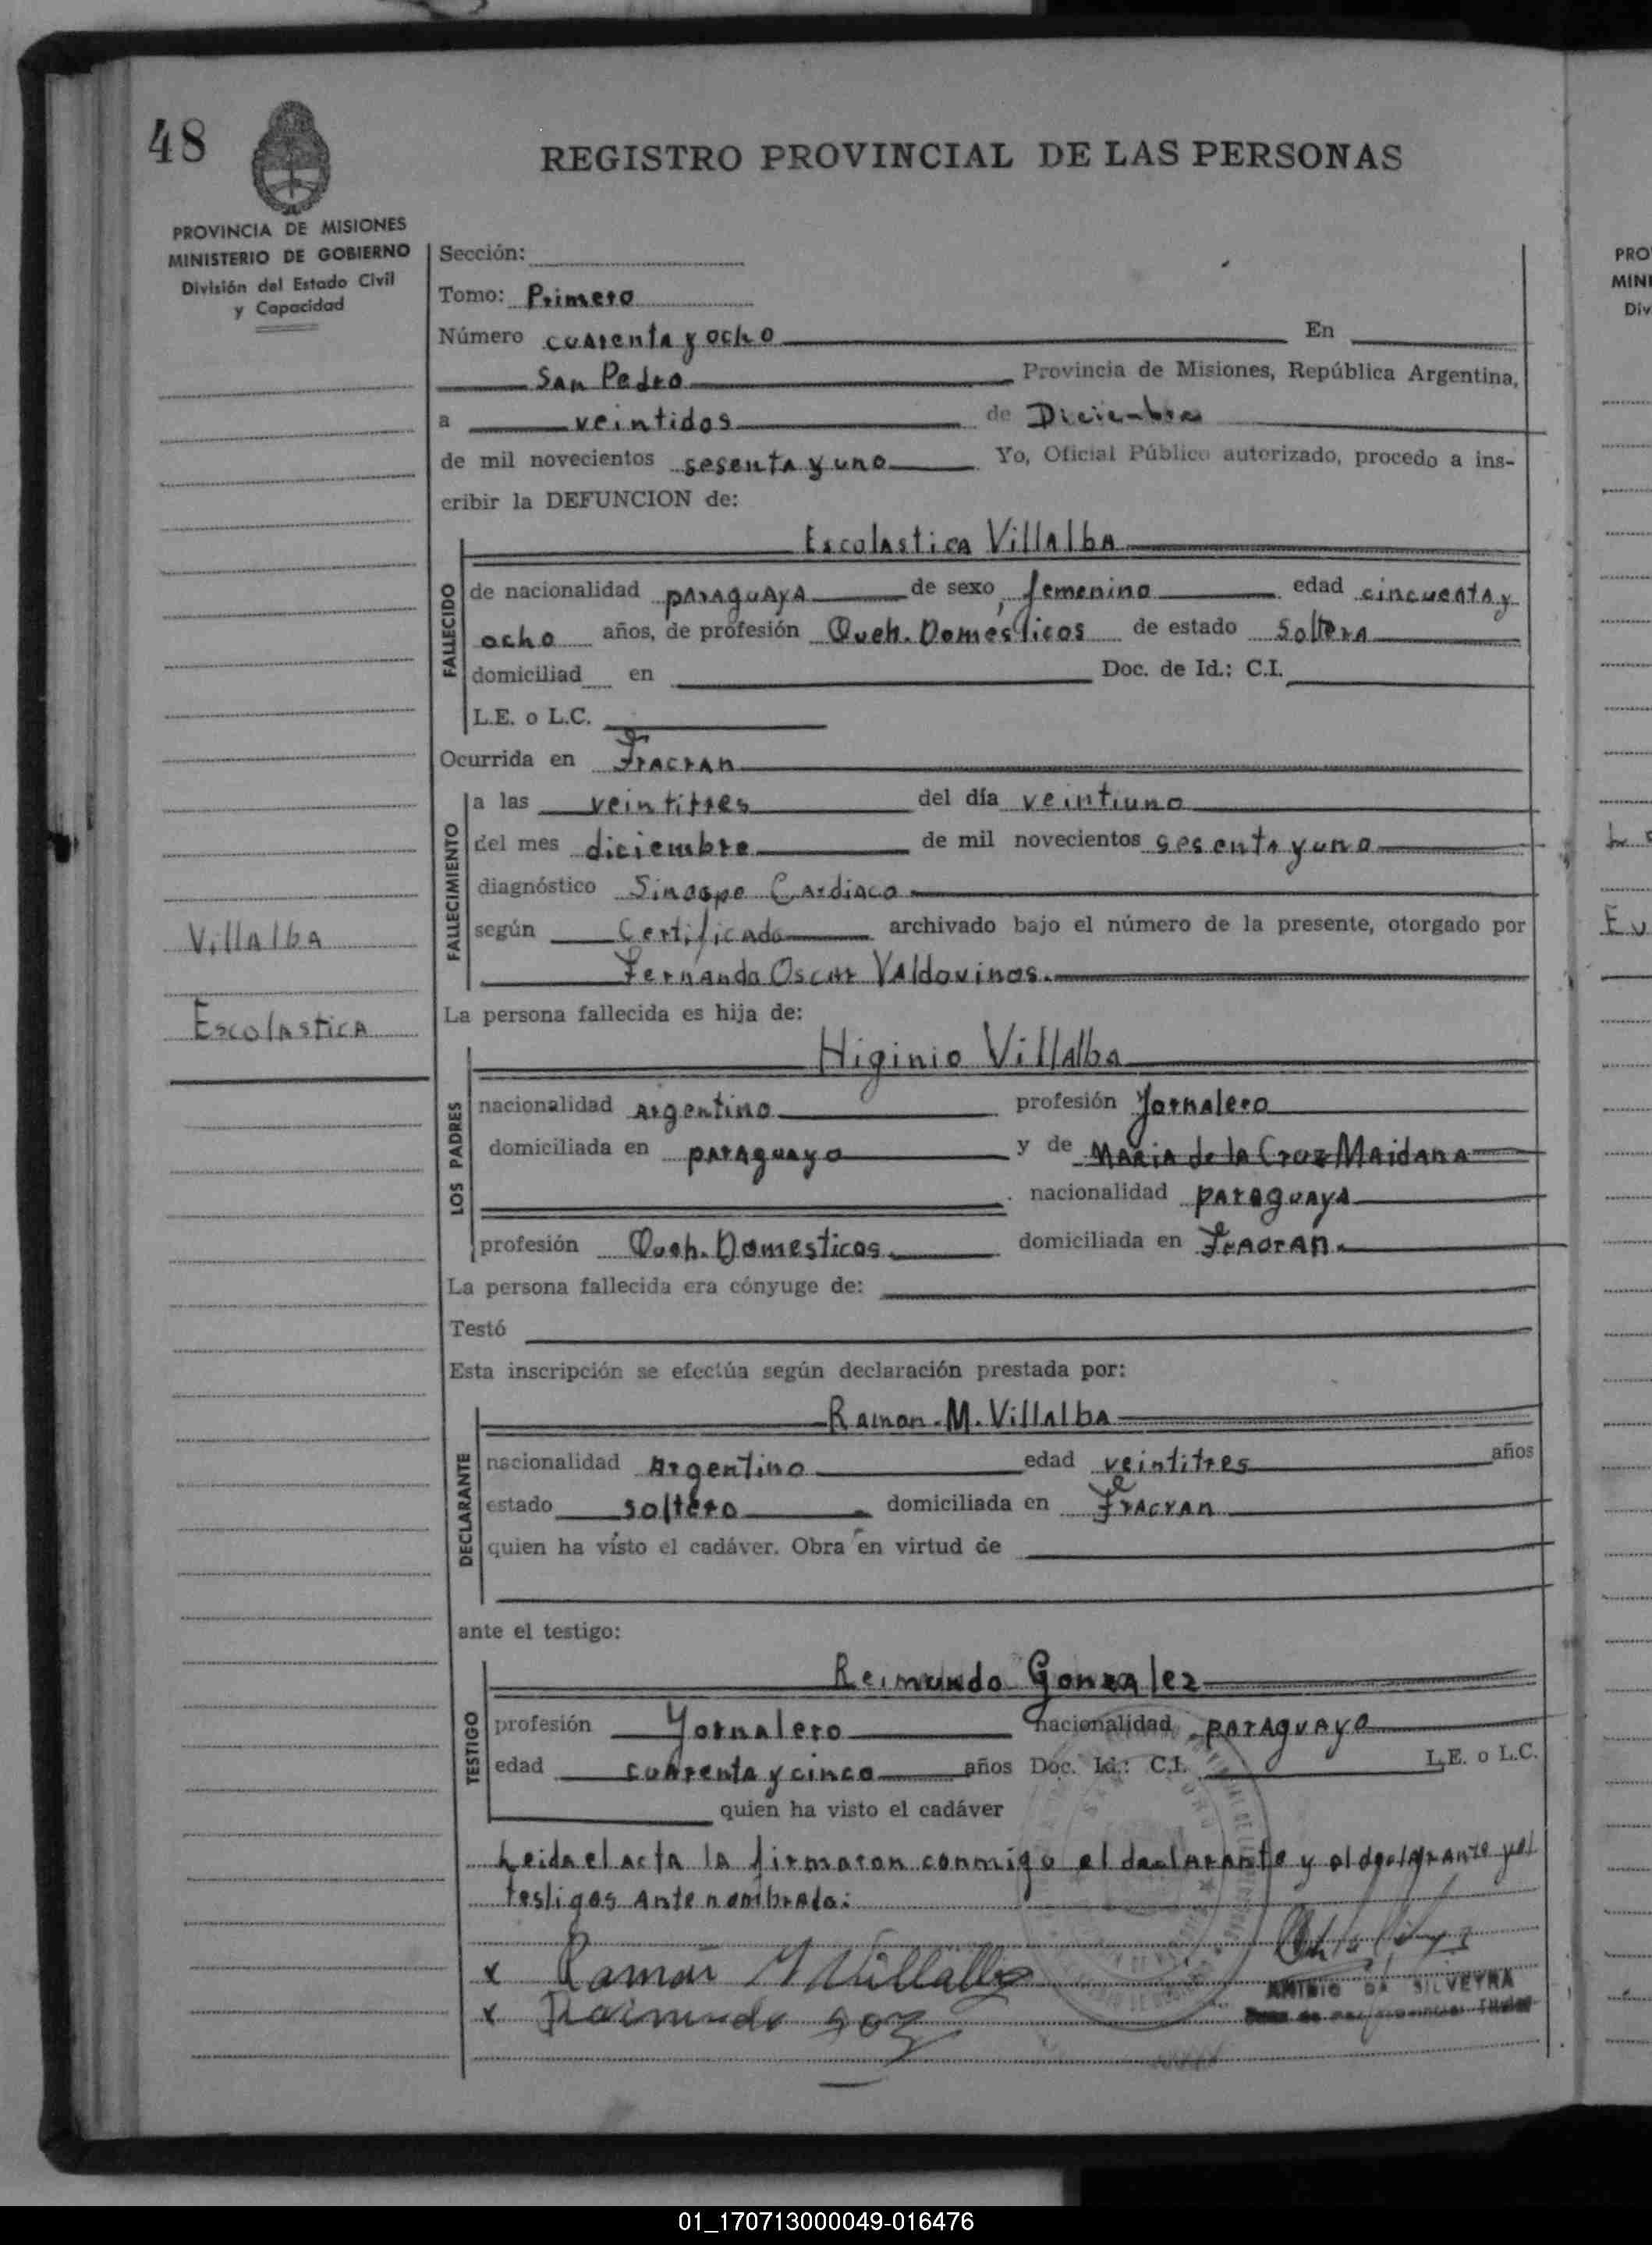 48
REGISTRO PROVINCIAL DE LAS PERSONAS
PROVINCIA DE MISIONES
MINISTERIO DE GOBIERNO
División del Estado Civil
y Capacidad
Sección:
Tomo: Primero
Número cuarenta y ocho En
San Pedro Provincia de Misiones, República Argentina,
a veintidos de Diciembre
de mil novecientos sesenta y uno Yo, Oficial Público autorizado, procedo a ins-
cribir la DEFUNCION de:
Escolastica Villalba
FALLECIDO
de nacionalidad paraguaya de sexo femenino edad cincuenta y
ocho años, de profesión Queh. Domésticos de estado Soltera
domiciliad en Doc. de Id.: C.I.
L.E. o L.C.
Ocurrida en Fracran
FALLECIMIENTO
a las veintitres del día veintiuno
del mes diciembre de mil novecientos sesenta y uno
diagnóstico Sincope Cardiaco
según Certificado archivado bajo el número de la presente, otorgado por
Fernando Oscar Valdovinos.
Villalba
Escolastica
La persona fallecida es hija de:
Higinio Villalba
LOS PADRES
nacionalidad Argentino profesión Jornalero
domiciliada en paraguayo y de Maria de la Cruz Maidana
nacionalidad paraguaya
profesión Queh. Domesticos domiciliada en Fracran.
La persona fallecida era cónyuge de:
Testó
Esta inscripción se efectúa según declaración prestada por:
Ramon. M. Villalba
DECLARANTE
nacionalidad Argentino edad veintitres años
estado soltero domiciliada en Fracran
quien ha visto el cadáver. Obra en virtud de
ante el testigo:
Reimundo Gonzalez
TESTIGO
profesión Jornalero nacionalidad paraguayo
edad cuarenta y cinco años Doc. Id.: C.I. L.E. o L.C.
quien ha visto el cadáver
Leida el acta la firmaron conmigo el declarante y el declarante y el
testigos antenombrado:
x Ramón M Villalba
x Raimundo goz
DA SILVEYRA
PRO
MINI
Div
01_170713000049-016476